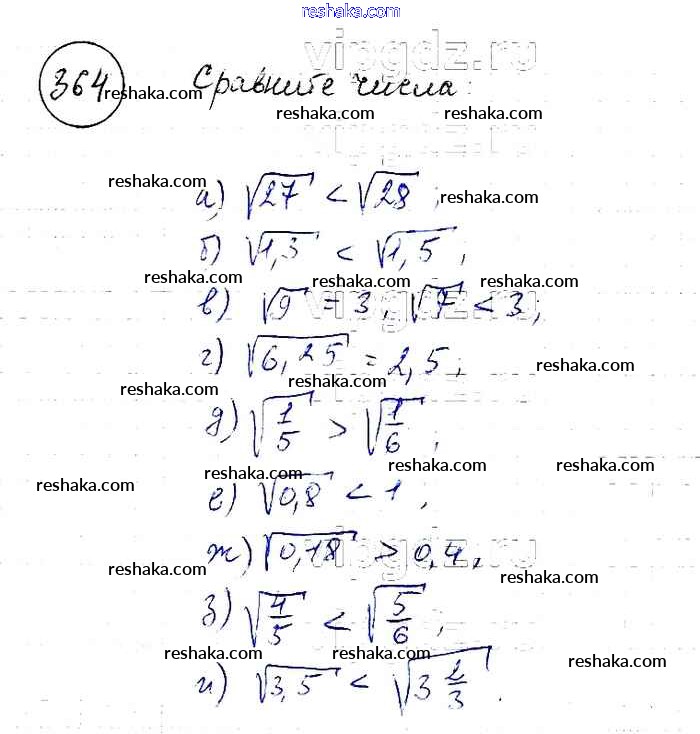 reshaka.com
reshaka.com
vipgdz.ru
364 Сравните числа:
reshaka.com reshaka.com
reshaka.com reshaka.com
reshaka.com reshaka.com
а) √27 < √28;
б) √1,3 < √1,5;
reshaka.com reshaka.com reshaka.com
vipgdz.ru
в) √9 = 3, √7 < 3,
г) √6,25 = 2,5,
reshaka.com reshaka.com reshaka.com
д) √1/5 > √1/6,
reshaka.com reshaka.com reshaka.com
е) √0,8 < 1,
vipgdz.ru
ж) √0,18 > 0,4,
reshaka.com reshaka.com reshaka.com
з) √4/5 < √5/6,
reshaka.com reshaka.com reshaka.com
и) √3,5 < √3 2/3.
reshaka.com reshaka.com